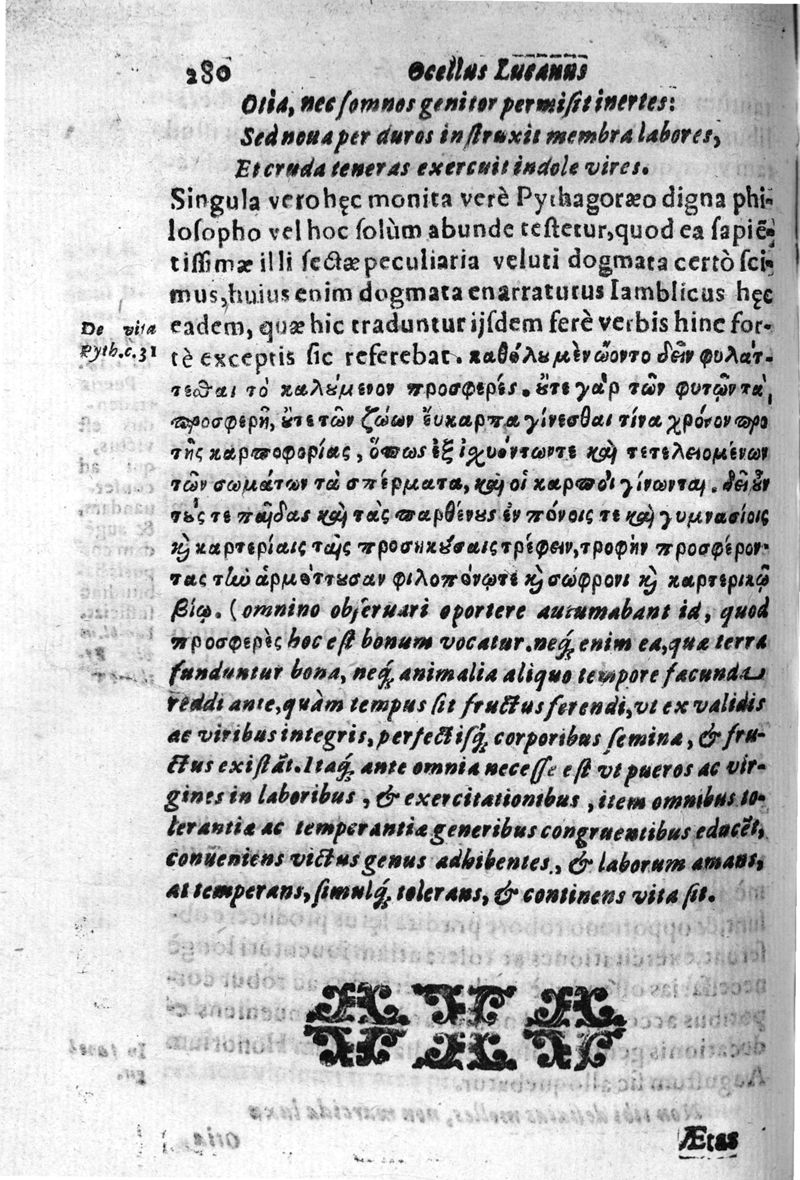 280 Ocellus Lucanus
Otia, nec somnos genitor permisit inertes:
Sed noua per duros instruxit membra labores,
Et cruda teneras exercuit indole vires.
Singula vero hęc monita verè Pythagoræo digna phi-
losopho vel hoc solùm abunde testetur, quod ea sapiẽ-
tissimæ illi sectæ peculiaria veluti dogmata certò sci-
mus, huius enim dogmata enarraturus Iamblicus hęc
De vita
Pyth. c. 31
eadem, quæ hic traduntur ijsdem ferè verbis hinc for-
tè exceptis sic referebat. καθόλου μὲν ᾤοντο δεῖν φυλάτ-
τεσθαι τὸ καλούμενον προσφερές. οὔτε γὰρ τῶν φυτῶν τὰ
προσφερῆ, οὔτε τῶν ζώων εὔκαρπα γίνεσθαι τίνα χρόνον προ
τῆς καρποφορίας, ὅπως ἐξ ἰσχυόντωντε καὶ τετελειομένων
τῶν σωμάτων τὰ σπέρματα, καὶ οἱ καρποὶ γίνωνται. δεῖ οὖν
τούς τε παῖδας καὶ τὰς παρθένους ἐν πόνοις τε καὶ γυμνασίοις
καὶ καρτερίαις ταῖς προσηκούσαις τρέφειν, τροφὴν προσφέρον-
τας τὴν ἁρμόττουσαν φιλοπόνῳτε καὶ σώφρονι καὶ καρτερικῷ
βίῳ. (omnino obseruari oportere autumabant id, quod
προσφερὲς hoc est bonum vocatur. neq́; enim ea, quæ terra
funduntur bona, neq́; animalia aliquo tempore facunda
reddi ante, quàm tempus sit fructus ferendi, vt ex validis
ac viribus integris, perfectisq́; corporibus semina, & fru-
ctus existãt. Itaq́; ante omnia necesse est vt pueros ac vir-
gines in laboribus, & exercitationibus, item omnibus to-
lerantiæ ac temperantiæ generibus congruentibus educẽt,
conueniens victus genus adhibentes, & laborum amans,
at temperans, simulq́; tolerans, & continens vita sit.
Ætas